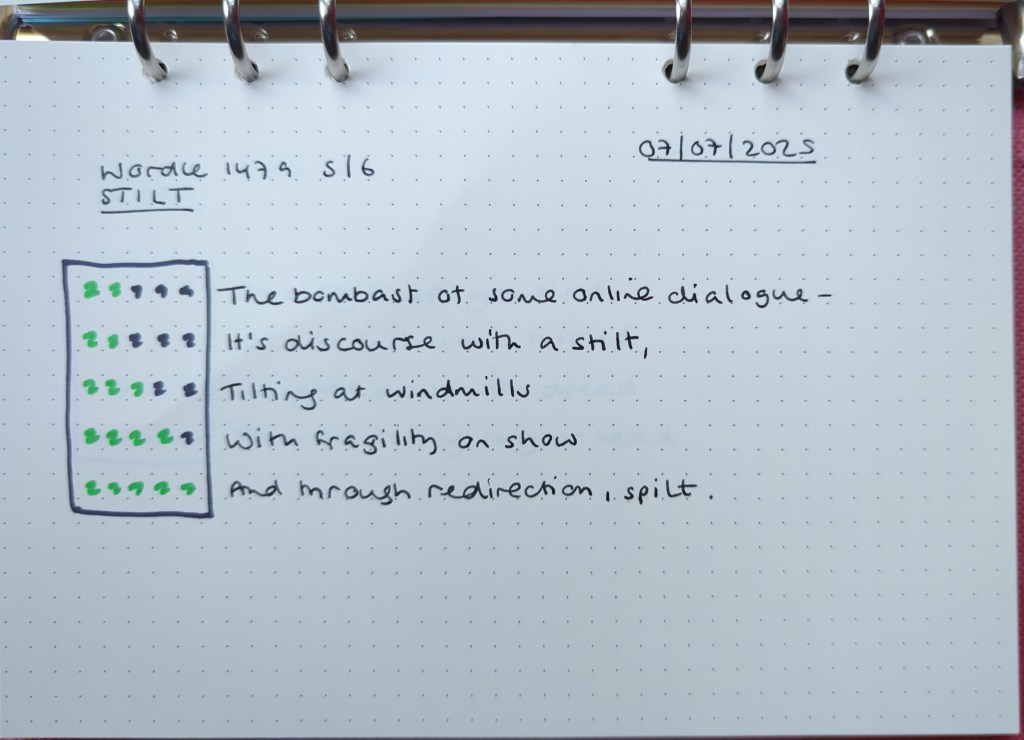 07/07/2025
Wordle 1479 5/6
STILT
The bombast of some online dialogue –
It's discourse with a stilt,
Tilting at windmills
With fragility on show
And through redirection, spilt.